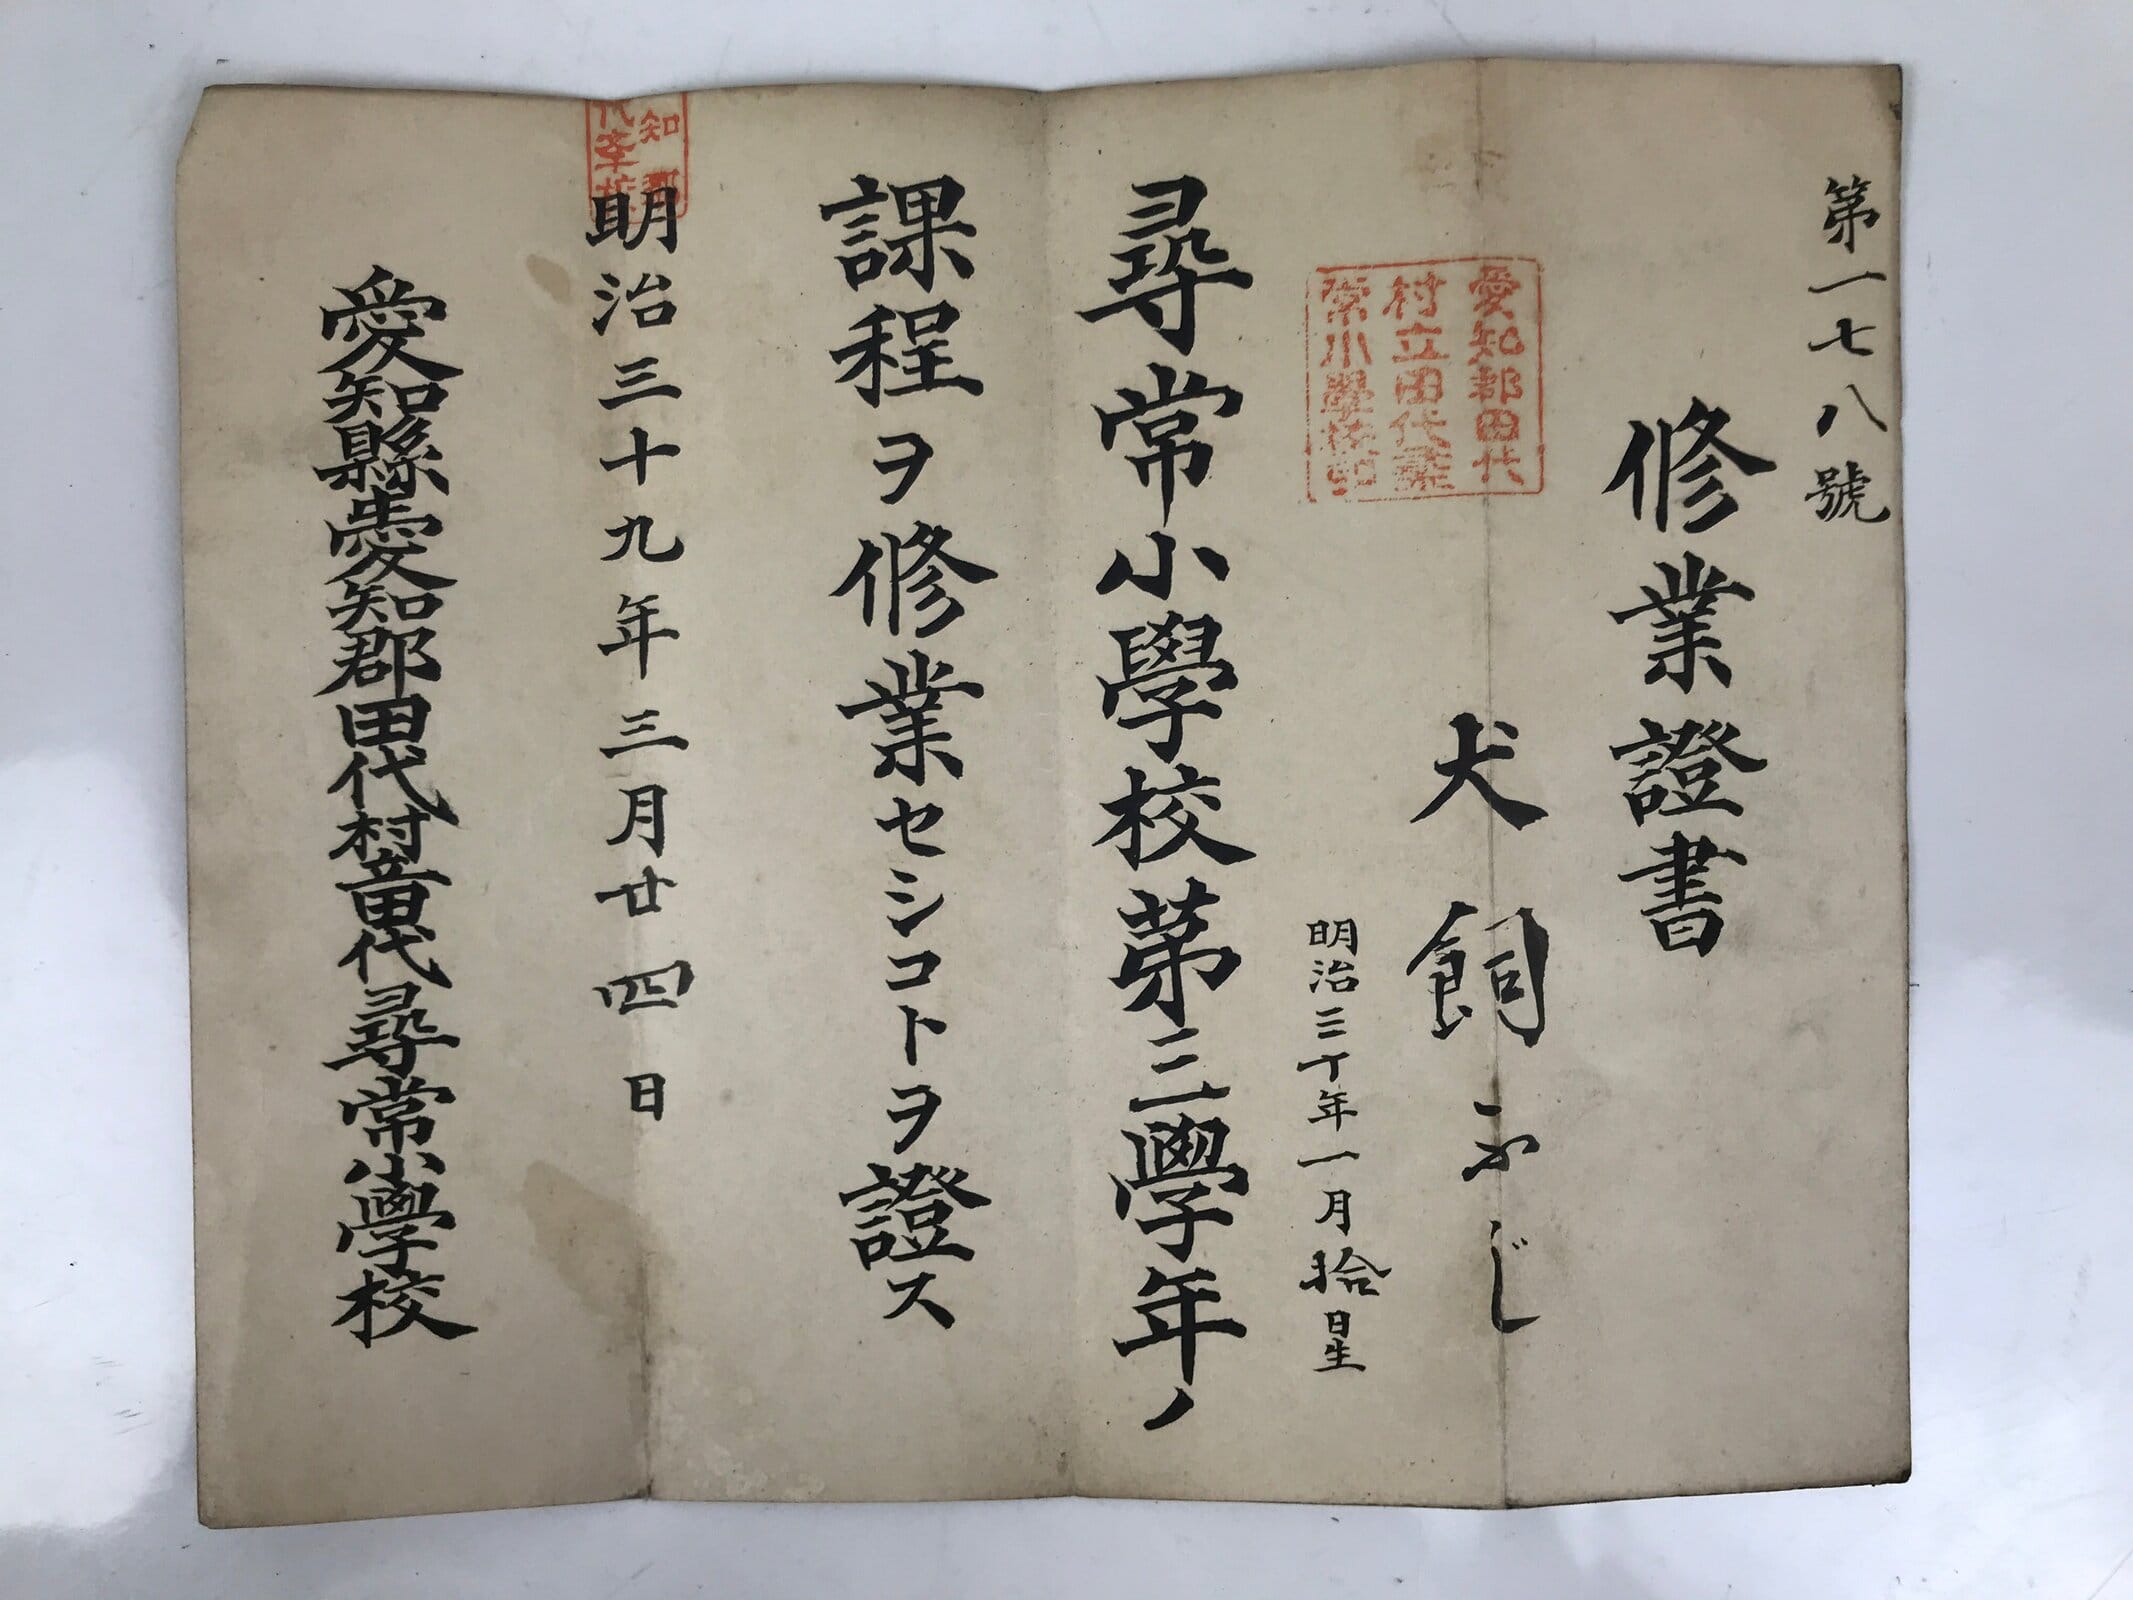 第一七八號
修業證書
愛知郡田代
村立田代尋
常小學校印
犬飼ふじ
明治三十年一月拾日生
尋常小學校第三學年ノ
課程ヲ修業セシコトヲ證ス
明治三十九年三月廿四日
愛知縣愛知郡田代村立田代尋常小學校